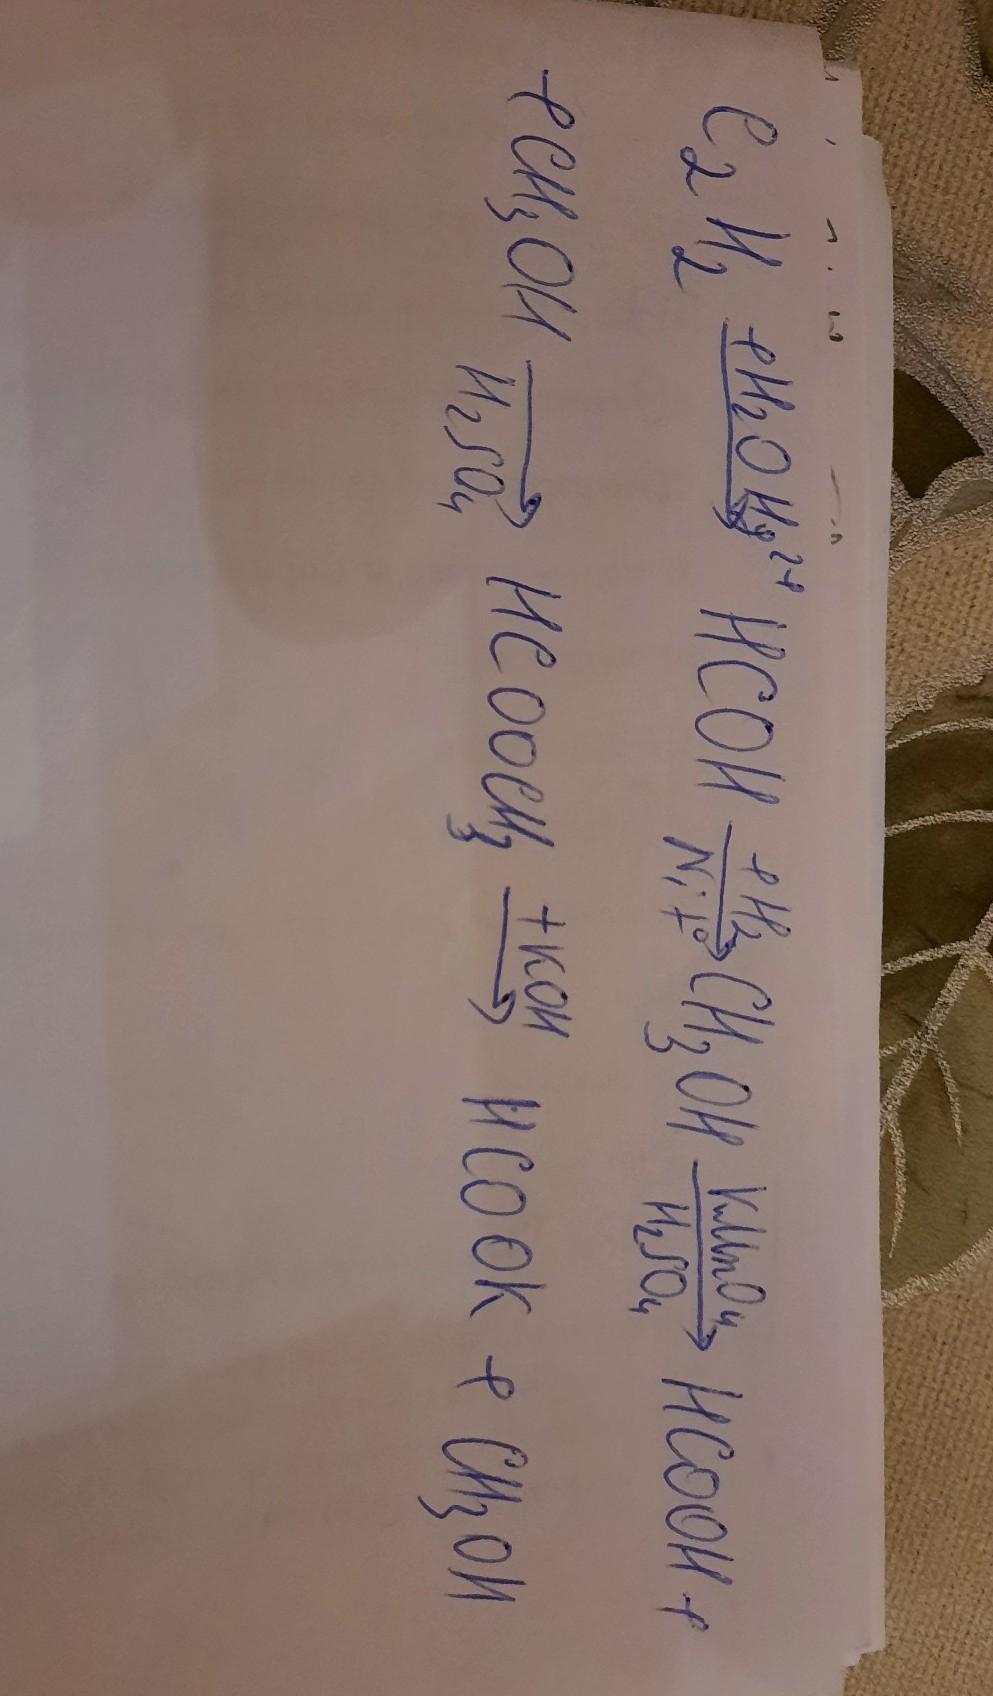 C₂H₂ +H₂O Hg²⁺→ HCOH +H₂ Ni t°→ CH₃OH KMnO₄ H₂SO₄→ HCOOH +
+CH₃OH → H₂SO₄ HCOOCH₃ +KOH → HCOOK + CH₃OH